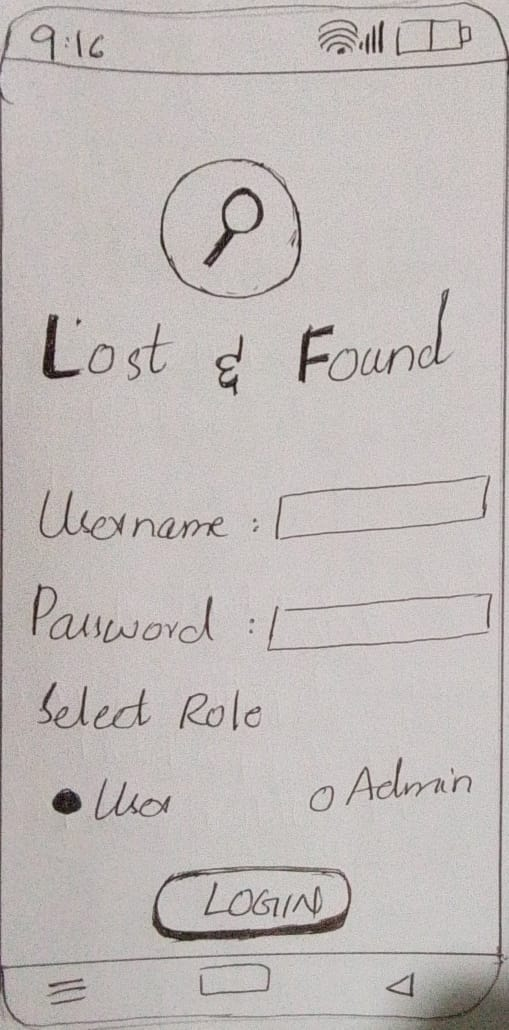 9:16
Lost & Found
Username :
Password :
Select Role
User
Admin
LOGIN